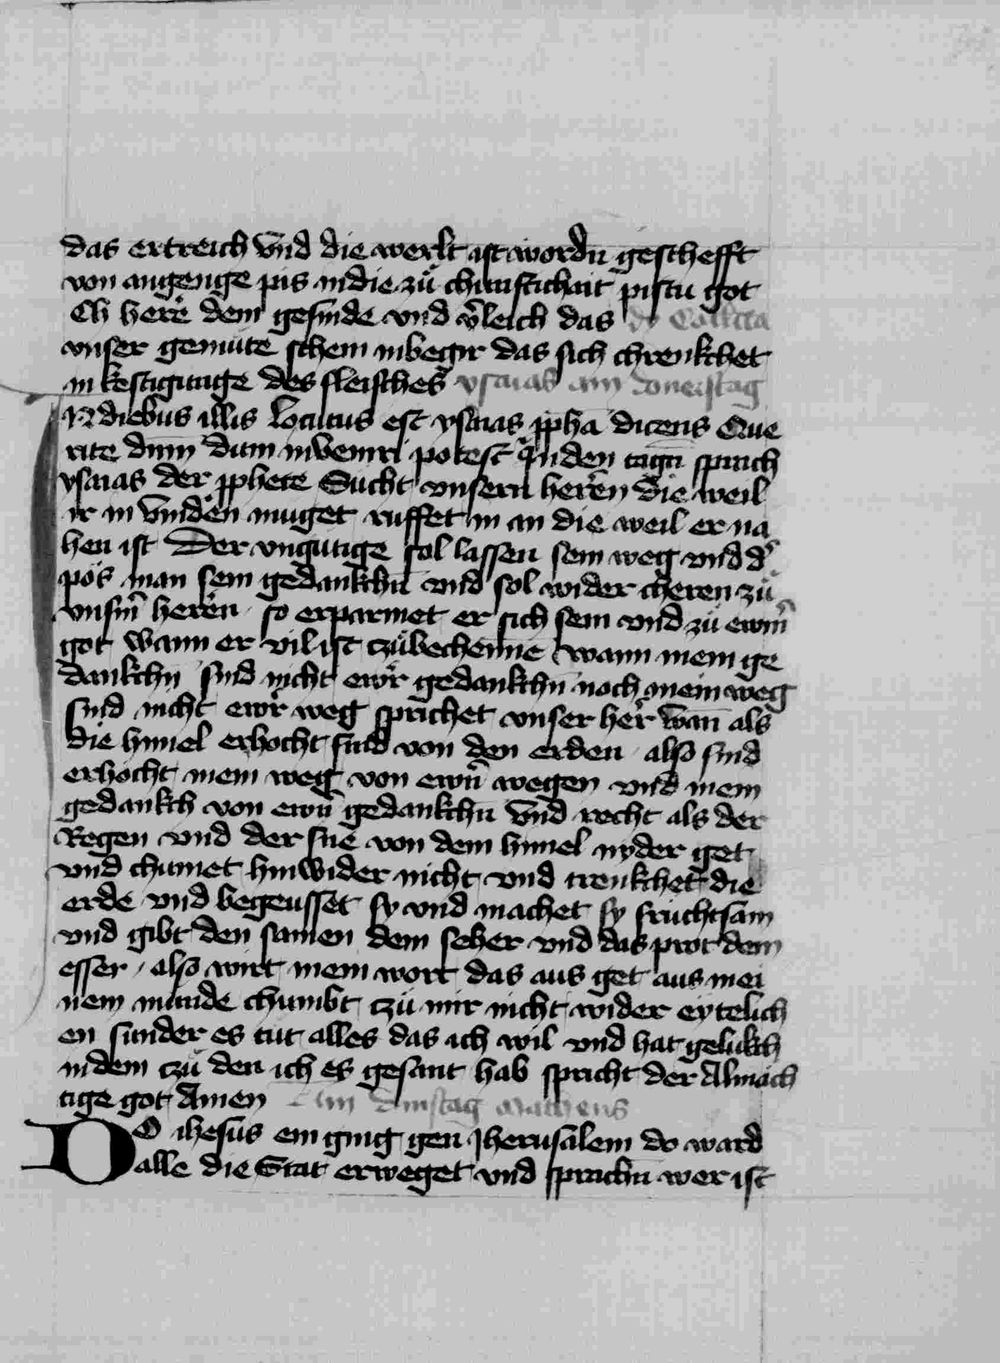 das ertreich vnd die werlt ist wordn̄ geschefft
von angenge pis in die zůchunftichait pistu got
Ch herr dem gesinde vnd v̄leich das Collecta
vnser gemute schein in begir das sich chrenkchet
in kestigunge des fleisches ysaias am donerstag
In diebus illis Locutus est ysaias ꝓpha dicens Que
rite dnm̄ dum inveniri potest In den tagn̄ sprach
ysaias der ꝓphete Sucht vnsern herren die weil
ir in vinden muget ruffet in an die weil er na
hen ist Der vngutige sol lassen sein weg vnd d̾
pös man sein gedankchn̄ vnd sol wider cheren zů
vnsm̄ herren so erparmet er sich sein vnd zů ewrm̄
got wann er vil ist czůbechenne wann mein ge
dankchn̄ sind nicht ewr gedankchn̄ noch mein weg
sind nicht ewr weg sprichet vnser herr wan̄ als
die himel erhocht sind von den erden also sind
erhöcht mein weg von ewrn̄ wegen vnd mein
gedankch von ewrn̄ gedankchn̄ vnd recht als der
Regen vnd der sne von dem himel nyder get
vnd chumet hinwider nicht vnd trenkchet die
erde vnd begeusset sy vnd machet sy fruchtsam
vnd gibt den samen dem seher vnd das prot dem
esser also wirt mein wort das aus get aus mei
nem munde chumbt czu mir nicht wider eytelich
en sunder es tut alles das ich wil vnd hat gelukch
in dem czů den ich es gesant hab spricht der Almäch
tige got Amen Am dinstag Matheus
DO ihesus ein ging gen Jherusalem do ward
alle die Stat erweget vnd sprachn̄ wer ist